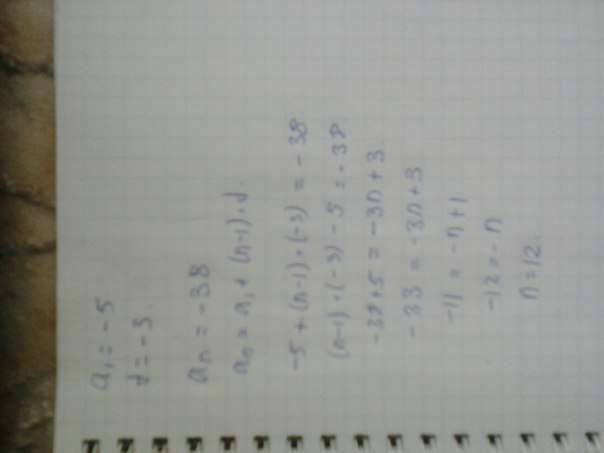 a₁ = -5
d = -3
aₙ = -38
aₙ = a₁ + (n-1)·d.
-5 + (n-1)·(-3) = -38
(n-1)·(-3) - 5 = -38.
-38 + 5 = -3n + 3.
-33 = -3n + 3
-11 = -n + 1
-12 = -n
n = 12.